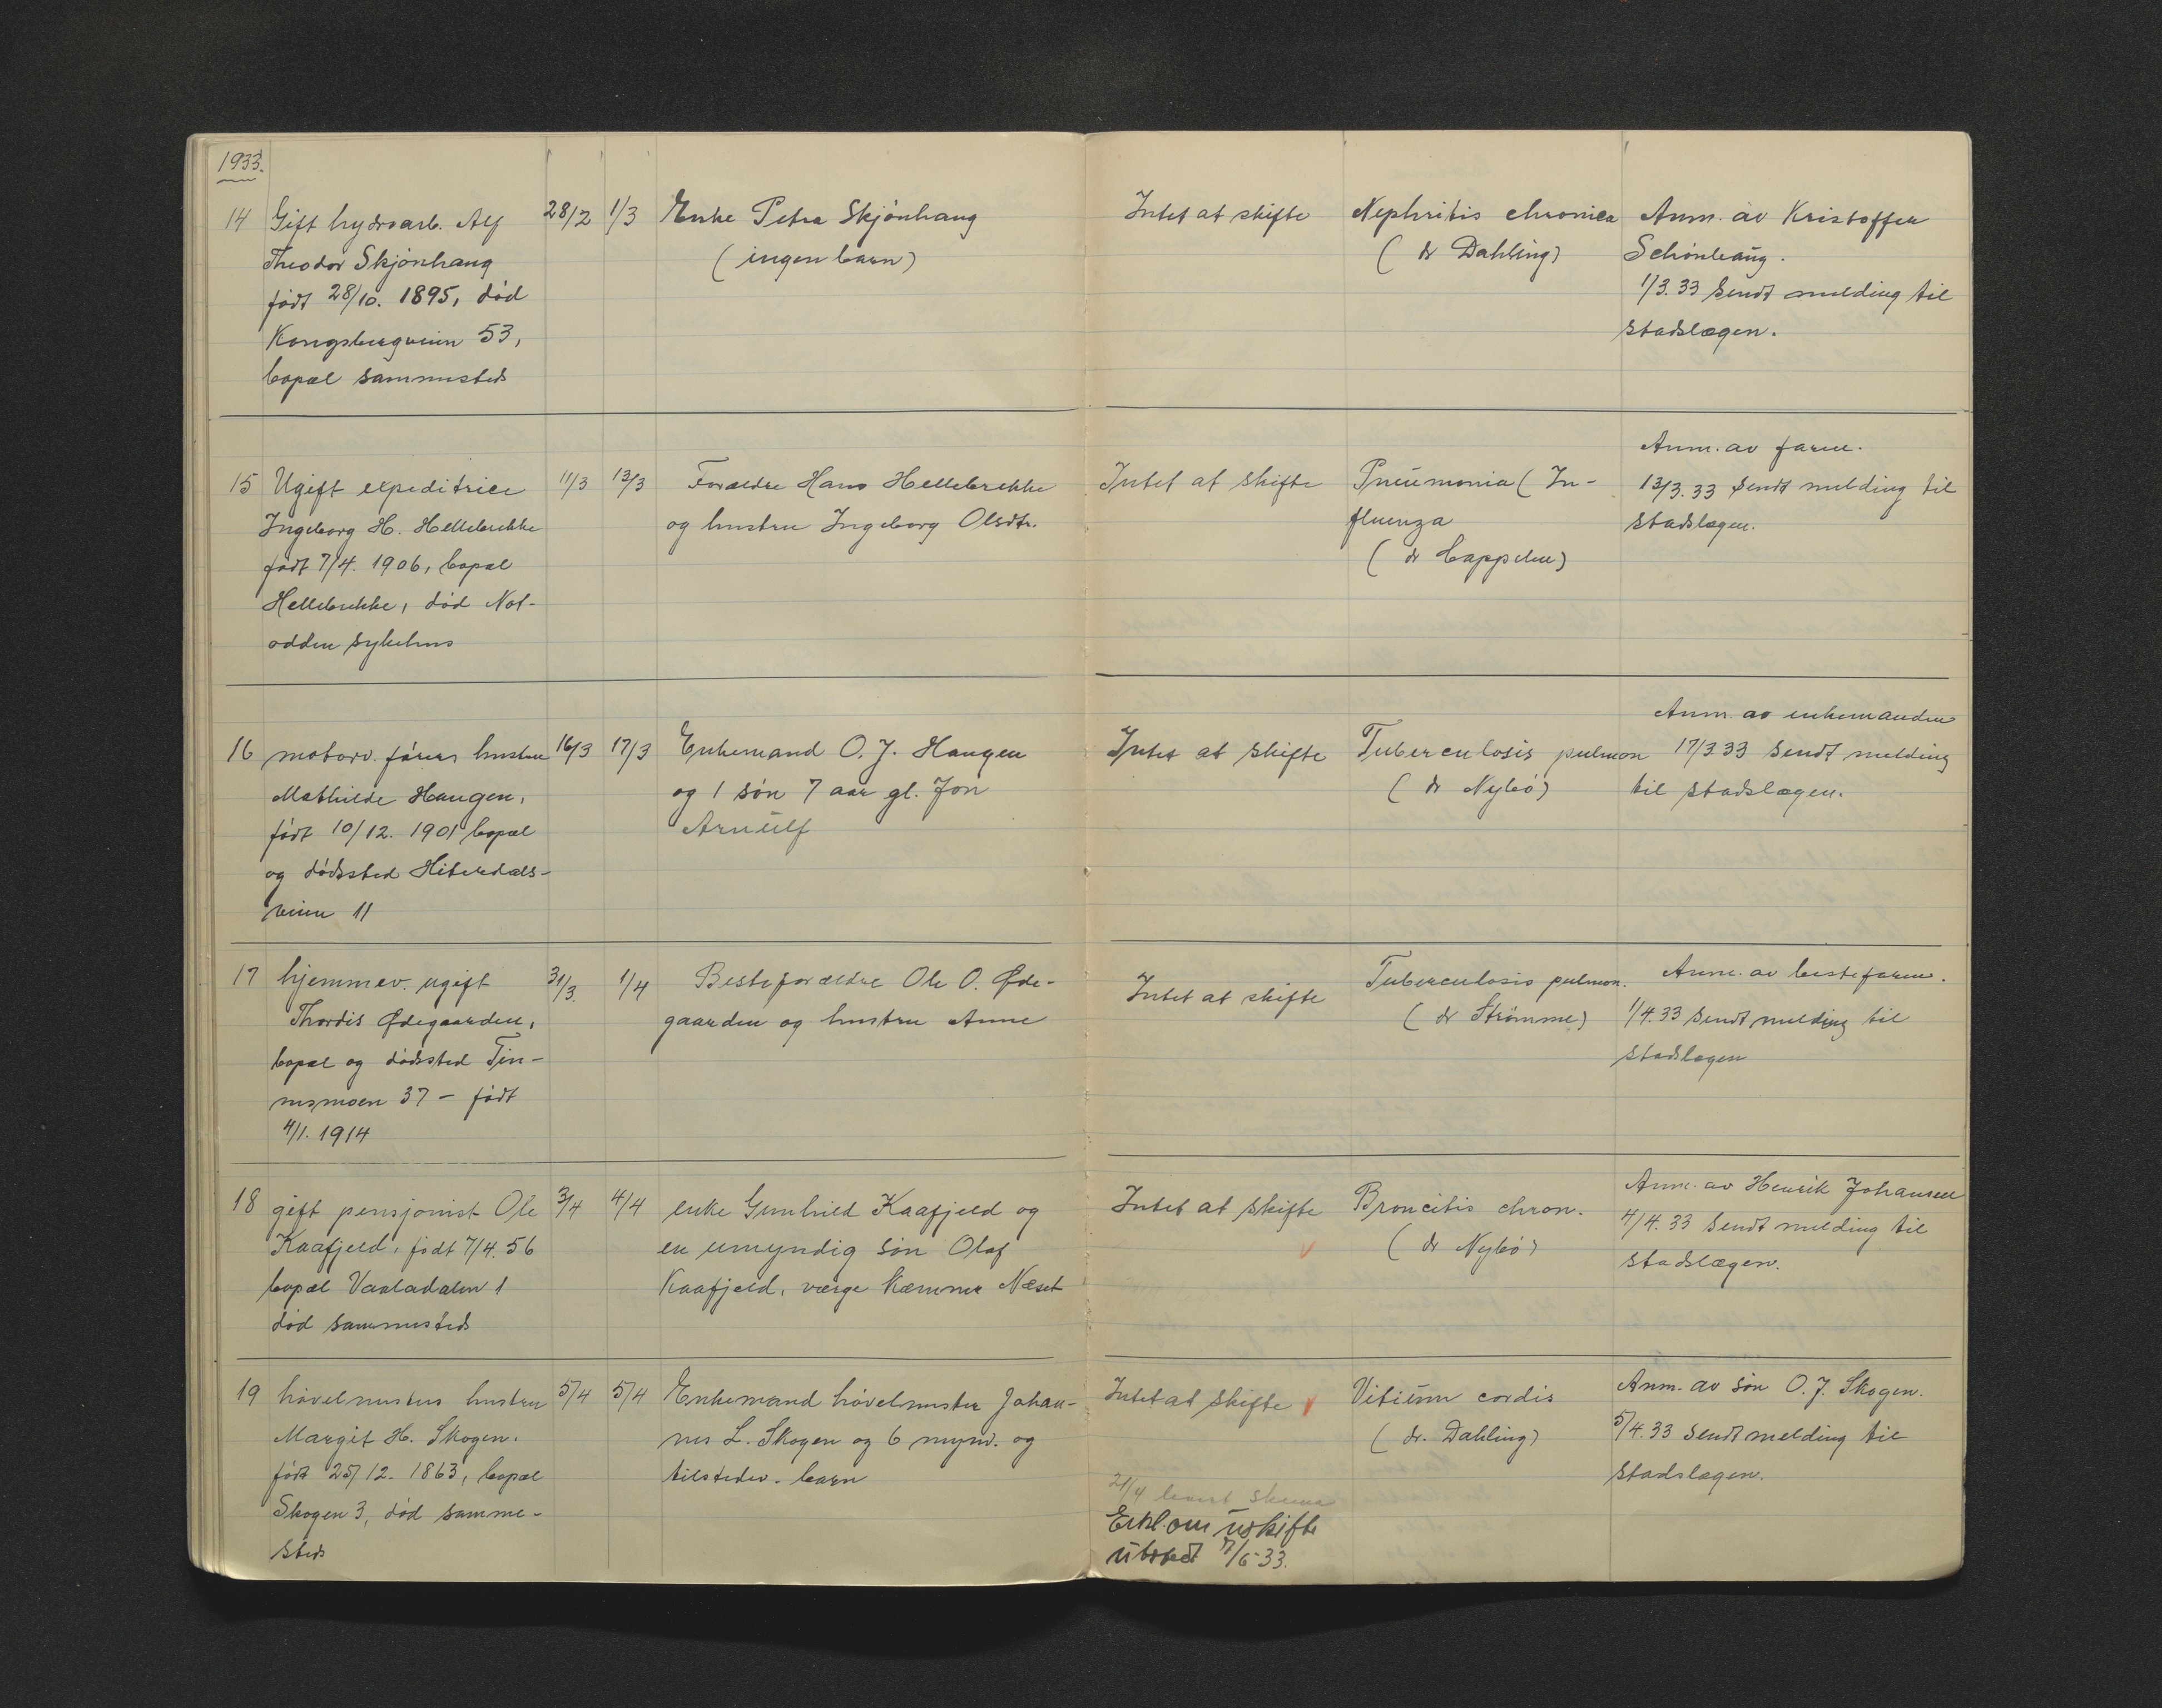 1933.
14 Gift hydroarb. Alf
Theodor Skjönhaug
født 28/10. 1895, død
Kongsbergveien 53,
bopæl sammesteds
28/2 1/3
Enke Petra Skjönhaug
(ingen barn)
Intet at skifte
Nephritis chronica
(dr Dahling)
Anm. av Kristoffer
Schönhaug.
1/3.33 Sendt melding til
stadslægen.
15 Ugift expeditrice
Ingeborg H. Hellebrekke
født 7/4. 1906, bopæl
Hellebrekke, død Not-
odden sykehus
11/3 13/3
Forældre Hans Hellebrekke
og hustru Ingeborg Olsdtr.
Intet at skifte
Pneumonia (In-
fluenza
(dr Cappelen)
Anm. av faren.
13/3.33 Sendt melding til
stadslægen.
16 motorv. førers hustru
Mathilde Haugen,
født 10/12. 1901 bopæl
og dødssted Hiterdals-
veien 11
16/3 17/3
Enkemand O. J. Haugen
og 1 søn 7 aar gl. Jon
Arnulf
Intet at skifte
Tuberculosis pulmon
(dr Nybö)
Anm. av enkemanden
17/3 33 Sendt melding
til stadslægen.
17 hjemmev. ugift
Thordis Ødegaarden,
bopæl og dødssted Tin-
nesmoen 37 - født
4/1. 1914
31/3. 1/4
Besteforældre Ole O. Øde-
gaarden og hustru Anne
Intet at skifte
Tuberculosis pulmon.
(dr Strömme)
Anm. av bestefaren.
1/4.33 Sendt melding til
stadslægen
18 gift pensjonist Ole
Kaafjeld, født 7/4. 56
bopæl Vaaladalen 1
død sammesteds
3/4 4/4
enke Gunhild Kaafjeld og
en umyndig søn Olaf
Kaafjeld, værge Kæmner Næset
Intet at skifte
Broncitis chron.
(dr Nybö)
Anm. av Henrik Johansen
4/4.33 Sendt melding til
stadslægen.
19 høvelmesters hustru
Margit H. Skogen.
født 25/12. 1863, bopæl
Skogen 3, død samme-
steds
5/4 5/4
Enkemand høvelmester Johan-
nes L. Skogen og 6 mynd. og
tilstedev. barn
Intet at skifte
21/4 levert skema
Erkl. om uskifte
utstedt 7/6-33.
Vitium cordis
(dr. Dahling)
Anm. av søn O. J. Skogen.
5/4.33 Sendt melding til
Stadslægen.